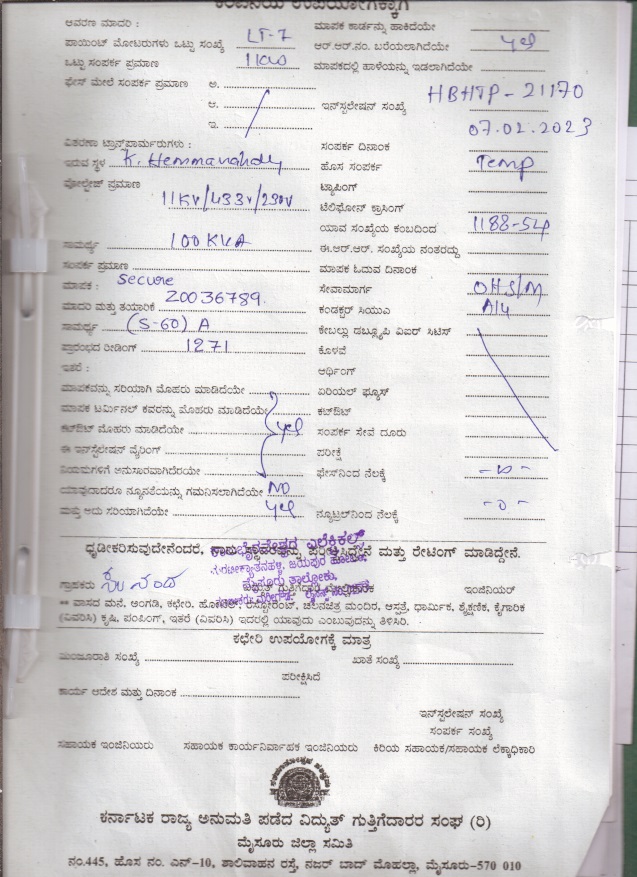 ಕಂಪನಿಯ ಉಪಯೋಗಕ್ಕಾಗಿ
ಆವರಣ ಮಾದರಿ : LT-7 ಮಾಪಕ ಕಾರ್ಡನ್ನು ಹಾಕಿದೆಯೇ
ಪಾಯಿಂಟ್ ಮೋಟರುಗಳು ಒಟ್ಟು ಸಂಖ್ಯೆ ಆರ್.ಆರ್.ನಂ. ಬರೆಯಲಾಗಿದೆಯೇ yes
ಒಟ್ಟು ಸಂಪರ್ಕ ಪ್ರಮಾಣ ಮಾಪಕದಲ್ಲಿ ಹಾಳೆಯನ್ನು ಇಡಲಾಗಿದೆಯೇ
ಫೇಸ್ ಮೇಲೆ ಸಂಪರ್ಕ ಪ್ರಮಾಣ ಅ.
ಆ. ಇನ್‌ಸ್ಟಲೇಷನ್ ಸಂಖ್ಯೆ HBHTP-21170
ಇ. 07.02.2023
ವಿತರಣಾ ಟ್ರಾನ್ಸ್‌ಫಾರ್ಮರುಗಳು : ಸಂಪರ್ಕ ದಿನಾಂಕ
ಇರುವ ಸ್ಥಳ K. Hemmanahally ಹೊಸ ಸಂಪರ್ಕ Temp
ವೋಲ್ಟೇಜ್ ಪ್ರಮಾಣ 11KV/433V/230V ಟ್ಯಾಪಿಂಗ್
ಟೆಲಿಫೋನ್ ಕ್ರಾಸಿಂಗ್
ಯಾವ ಸಂಖ್ಯೆಯ ಕಂಬದಿಂದ
ಸಾಮರ್ಥ್ಯ 100 KVA ಈ.ಆರ್.ಆರ್. ಸಂಖ್ಯೆಯ ನಂತರದ್ದು
ಸಂಪರ್ಕ ಪ್ರಮಾಣ ಮಾಪಕ ಓದುವ ದಿನಾಂಕ
ಮಾಪಕ : Secure ಸೇವಾಮಾರ್ಗ OHS/M
ಮಾದರಿ ಮತ್ತು ತಯಾರಿಕೆ 20036789. ಕಂಡಕ್ಟರ್ ಸಿಯುಎ
ಸಾಮರ್ಥ್ಯ (5-60) A ಕೇಬಲ್ಲು ಡಬ್ಲ್ಯೂಪಿ ವಿಐರ್ ಸಿಟಿಸ್
ಪ್ರಾರಂಭದ ರೀಡಿಂಗ್ 1271 ಕೊಳವೆ
ಇತರೆ : ಆರ್ಥಿಂಗ್
ಮಾಪಕವನ್ನು ಸರಿಯಾಗಿ ಮೊಹರು ಮಾಡಿದೆಯೇ ಏರಿಯಲ್ ಫ್ಯೂಸ್
ಮಾಪಕ ಟರ್ಮಿನಲ್ ಕವರನ್ನು ಮೊಹರು ಮಾಡಿದೆಯೇ ಕಟ್‌ಔಟ್
ಕಟ್‌ಔಟ್ ಮೊಹರು ಮಾಡಿದೆಯೇ yes ಸಂಪರ್ಕ ಸೇವೆ ದೂರು
ಈ ಇನ್‌ಸ್ಟಲೇಷನ್ ವೈರಿಂಗ್ ಪರೀಕ್ಷೆ
ನಿಯಮಗಳಿಗೆ ಅನುಸಾರವಾಗಿದೆಯೇ ಫೇಸ್‌ನಿಂದ ನೆಲಕ್ಕೆ
ಯಾವುದಾದರೂ ನ್ಯೂನತೆಯನ್ನು ಗಮನಿಸಲಾಗಿದೆಯೇ NO
ಮತ್ತು ಅದು ಸರಿಯಾಗಿದೆಯೇ yes ನ್ಯೂಟ್ರಲ್‌ನಿಂದ ನೆಲಕ್ಕೆ -0-
ಧೃಡೀಕರಿಸುವುದೇನೆಂದರೆ, ಸ್ಥಾವರವನ್ನು ಪರೀಕ್ಷಿಸಿದ್ದೇನೆ ಮತ್ತು ರೇಟಿಂಗ್ ಮಾಡಿದ್ದೇನೆ.
ಭೈರವೇಶ್ವರ ಎಲೆಕ್ಟ್ರಿಕಲ್ಸ್
ಮೈಸೂರು ತಾಲ್ಲೂಕು.
ಗ್ರಾಹಕರು ವಿದ್ಯುತ್ ಗುತ್ತಿಗೆದಾರ ಇಂಜಿನಿಯರ್
** ವಾಸದ ಮನೆ, ಅಂಗಡಿ, ಕಛೇರಿ, ಹೋಟೆಲ್, ರೆಸ್ಟೋರೆಂಟ್, ಚಲನಚಿತ್ರ ಮಂದಿರ, ಆಸ್ಪತ್ರೆ, ಧಾರ್ಮಿಕ, ಶೈಕ್ಷಣಿಕ, ಕೈಗಾರಿಕ
(ವಿವರಿಸಿ) ಕೃಷಿ, ಪಂಪಿಂಗ್, ಇತರೆ (ವಿವರಿಸಿ) ಇದರಲ್ಲಿ ಯಾವುದು ಎಂಬುವುದನ್ನು ತಿಳಿಸಿರಿ.
ಕಛೇರಿ ಉಪಯೋಗಕ್ಕೆ ಮಾತ್ರ
ಮಂಜೂರಾತಿ ಸಂಖ್ಯೆ ಖಾತೆ ಸಂಖ್ಯೆ
ಪರೀಕ್ಷಿಸಿದೆ
ಕಾರ್ಯ ಆದೇಶ ಮತ್ತು ದಿನಾಂಕ
ಇನ್‌ಸ್ಟಲೇಷನ್ ಸಂಖ್ಯೆ
ಸಂಪರ್ಕ ಸಂಖ್ಯೆ
ಸಹಾಯಕ ಇಂಜಿನಿಯರು ಸಹಾಯಕ ಕಾರ್ಯನಿರ್ವಾಹಕ ಇಂಜಿನಿಯರು ಕಿರಿಯ ಸಹಾಯಕ/ಸಹಾಯಕ ಲೆಕ್ಕಾಧಿಕಾರಿ
ಕರ್ನಾಟಕ ರಾಜ್ಯ ಅನುಮತಿ ಪಡೆದ ವಿದ್ಯುತ್ ಗುತ್ತಿಗೆದಾರರ ಸಂಘ (ರಿ)
ಮೈಸೂರು ಜಿಲ್ಲಾ ಸಮಿತಿ
ನಂ.445, ಹೊಸ ನಂ. ಎನ್-10, ಶಾಲಿವಾಹನ ರಸ್ತೆ, ನಜರ್ ಬಾದ್ ಮೊಹಲ್ಲಾ, ಮೈಸೂರು-570 010